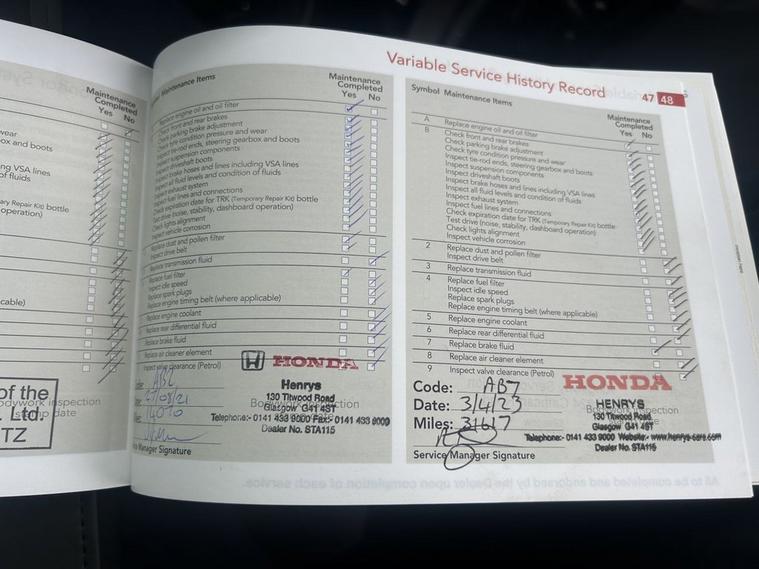 Maintenance
Completed
Yes No
wear
ox and boots
ng VSA lines
of fluids
ary Repair Kit) bottle
operation)
cable)
of the
Ltd.
TZ
Maintenance Items
Maintenance
Completed
Yes No
Replace engine oil and oil filter
Check front and rear brakes
Check parking brake adjustment
Check tyre condition pressure and wear
Inspect tie-rod ends, steering gearbox and boots
Inspect suspension components
Inspect driveshaft boots
Inspect brake hoses and lines including VSA lines
Inspect all fluid levels and condition of fluids
Inspect exhaust system
Inspect fuel lines and connections
Check expiration date for TRK (Temporary Repair Kit) bottle
Test drive (noise, stability, dashboard operation)
Check lights alignment
Inspect vehicle corrosion
Replace dust and pollen filter
Inspect drive belt
Replace transmission fluid
Replace fuel filter
Inspect idle speed
Replace spark plugs
Replace engine timing belt (where applicable)
Replace engine coolant
Replace rear differential fluid
Replace brake fluid
Replace air cleaner element
Inspect valve clearance (Petrol)
HONDA
Henrys
130 Titwood Road
Glasgow G41 4ST
Telephone:- 0141 433 9000 Fax:- 0141 433 9009
Dealer No. STA115
Manager Signature
Variable Service History Record
47 48
Symbol Maintenance Items
Maintenance
Completed
Yes No
A Replace engine oil and oil filter
B Check front and rear brakes
Check parking brake adjustment
Check tyre condition pressure and wear
Inspect tie-rod ends, steering gearbox and boots
Inspect suspension components
Inspect driveshaft boots
Inspect brake hoses and lines including VSA lines
Inspect all fluid levels and condition of fluids
Inspect exhaust system
Inspect fuel lines and connections
Check expiration date for TRK (Temporary Repair Kit) bottle
Test drive (noise, stability, dashboard operation)
Check lights alignment
Inspect vehicle corrosion
2 Replace dust and pollen filter
Inspect drive belt
3 Replace transmission fluid
4 Replace fuel filter
Inspect idle speed
Replace spark plugs
Replace engine timing belt (where applicable)
5 Replace engine coolant
6 Replace rear differential fluid
7 Replace brake fluid
8 Replace air cleaner element
9 Inspect valve clearance (Petrol)
HONDA
Code: AB7
Date: 3/4/23
Miles: 31617
HENRYS
130 Titwood Road
Glasgow G41 4ST
Telephone:- 0141 433 9000 Website:- www.henrys-cars.com
Dealer No. STA115
Service Manager Signature